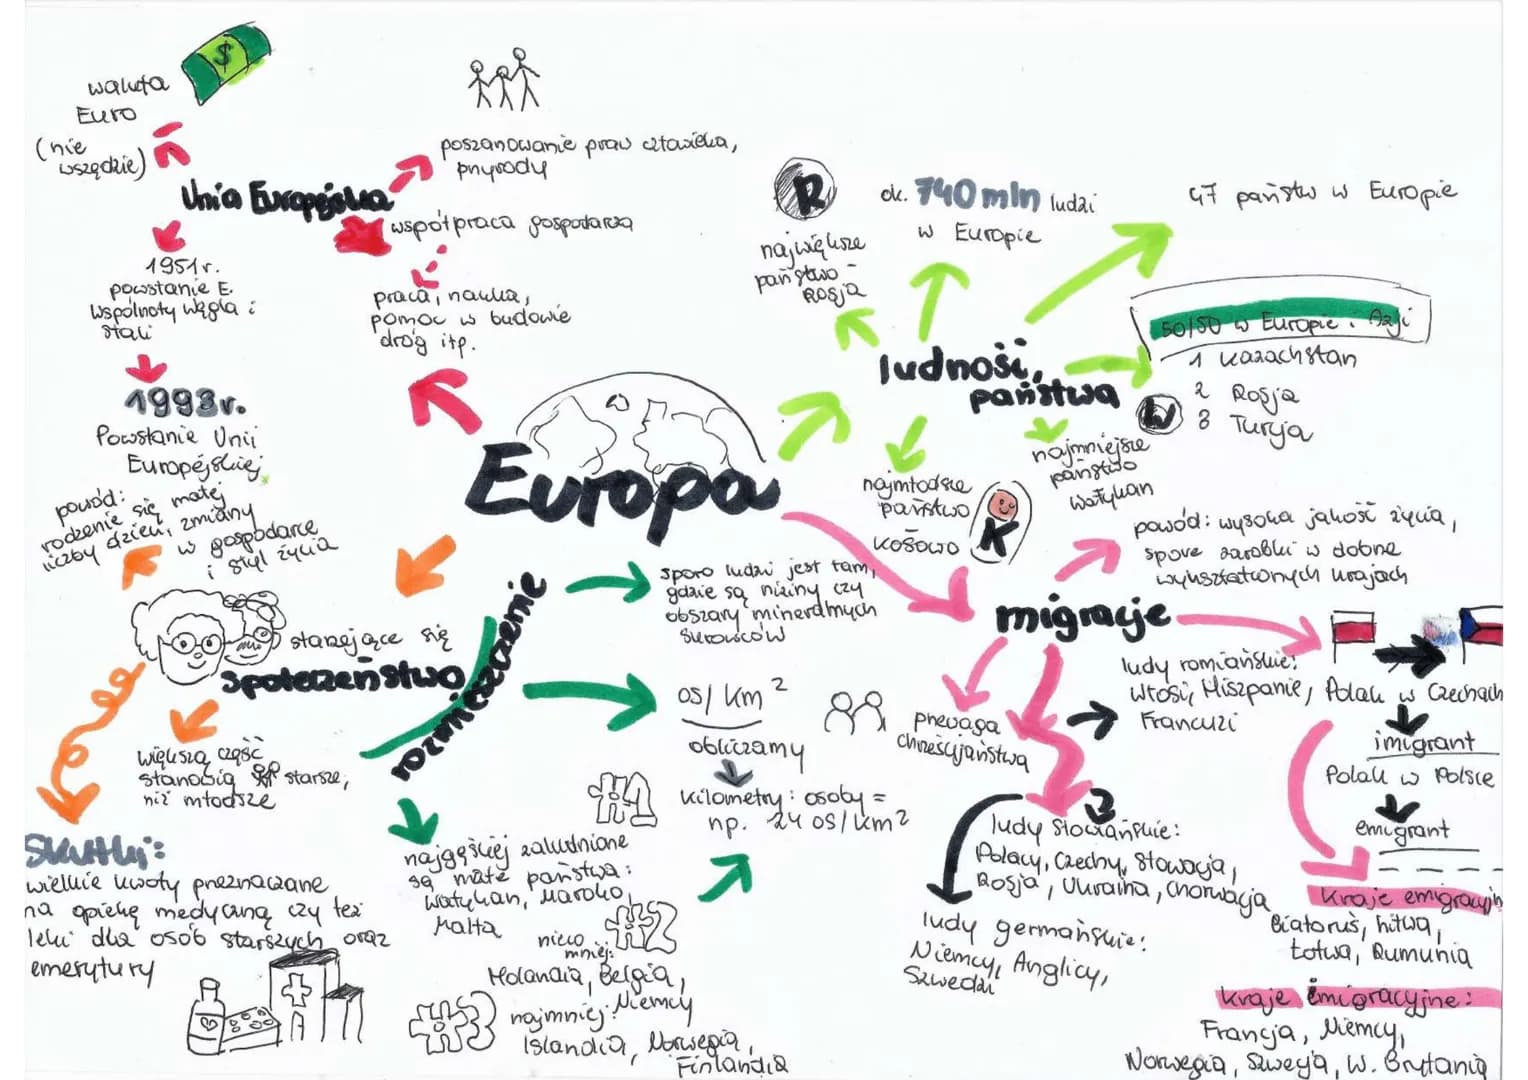 waluta
Euro
(nie
wszędzie)
$
Unia Europejska
poszanowanie praw człowieka,
przyrody
współpraca gospodarcza
praca, nauka,
pomoc w budowie
dróg itp.
1951r.
powstanie E.
Wspólnoty Węgla i
Stali
1993r.
Powstanie Unii
Europejskiej
powód: matej
rodzenie się
liczby dzieci, zmiany
w gospodarce
i styl życia
Europa
R
największe
państwo -
Rosja
ok. 740 mln ludzi
w Europie
47 państw w Europie
ludność,
państwa
50/50 w Europie i Azji
1 Kazachstan
2 Rosja
3 Turcja
W
najmniejsze
państwo
Watykan
najmłodsze
państwo
Kosowo
K
starzejące się
społeczeństwo
większą część
stanowią starsze,
niż młodsze
Skutki:
wielkie kwoty przeznaczane
na opiekę medyczną czy też
leki dla osób starszych oraz
emerytury
rozmieszczenie
sporo ludzi jest tam,
gdzie są niziny czy
obszary mineralnych
surowców
os/km²
obliczamy
kilometry : osoby =
np. 24 os/km²
#1
najgęściej zaludnione
są małe państwa:
Watykan, Maroko,
Malta
#2
nieco
mniej:
Holandia, Belgia,
Niemcy
#3
najmniej:
Islandia, Norwegia,
Finlandia
migracje
powód: wysoka jakość życia,
spore zarobki w dobrze
wykształconych krajach
przewaga
chrześcijaństwa
ludy romańskie:
Włosi, Hiszpanie,
Francuzi
ludy słowiańskie:
Polacy, Czechy, Słowacja,
Rosja, Ukraina, Chorwacja
ludy germańskie:
Niemcy, Anglicy,
Szwedzi
Polak w Czechach
imigrant
Polak w Polsce
emigrant
Kraje emigracyjn
Białoruś, Litwa,
Łotwa, Rumunia
Kraje imigracyjne:
Francja, Niemcy,
Norwegia, Szwecja, W. Brytania